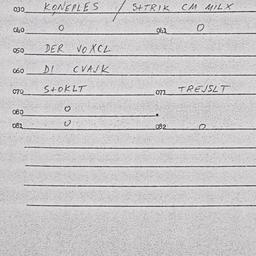 030 KONEPLES / S+TRIK CM MILX
040 0 041 0
050 DER VOXCL
060 DI CVAJK
070 S+OKLT 071 TREJSLT
080 0
081 0 082 0